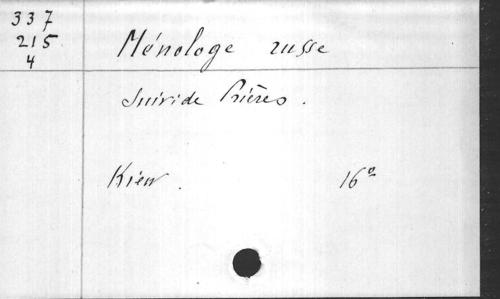 337
215
4
Ménologe russe
Suivi de Prières.
Kiew. 16º